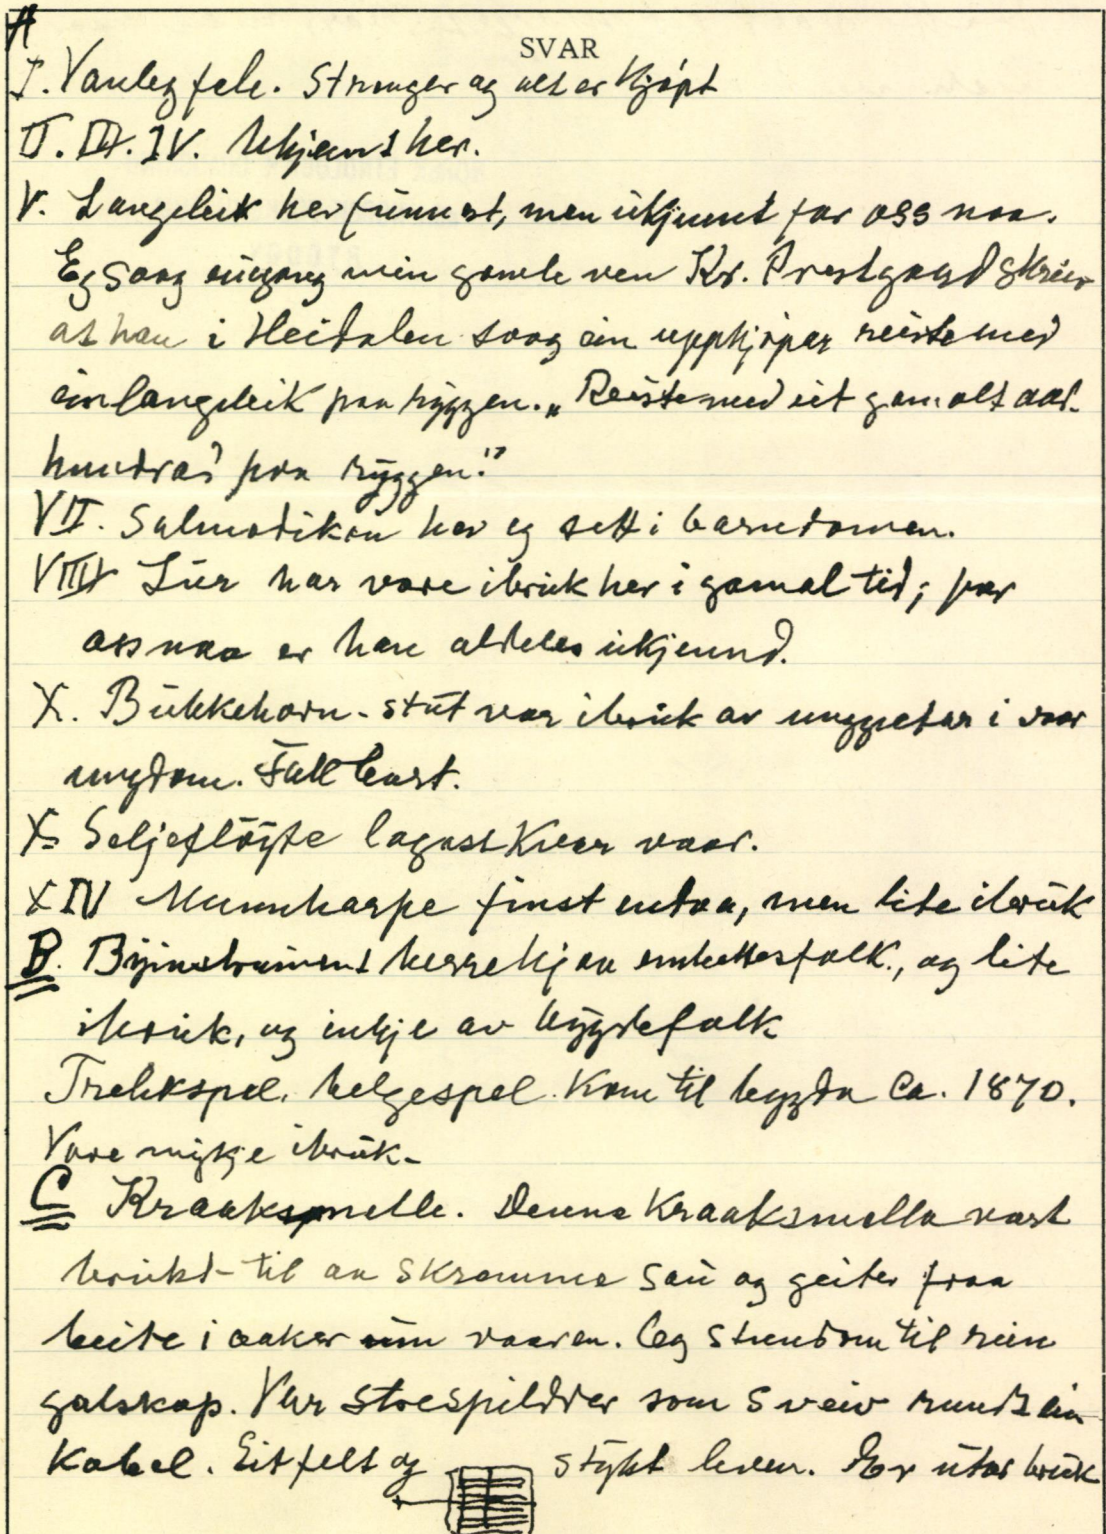 A
SVAR
I. Vanleg fele. Strenger og alt er kjöpt
II. III. IV. Ukjent her.
V. Langeleik her funnest, men ukjennt for oss naa.
Eg saag eingong min gamle ven Kr. Prestgard skreiv
at han i Heidalen saag ein uppkjöpar reiste med
ein langeleik paa ryggen. „Reiste med eit gamalt aar-
hundrad paa ryggen."
VII. Salmodikon har eg sett i barndomen.
VIII Lur har vore i bruk her i gamal tid; for
oss naa er han aldeles ukjennd.
X. Bukkehorn - stut var i bruk av unggjetar i vaar
ungdom. Fullbast.
X Seljeflöjte lagast kvar vaar.
XIV Munnharpe finst endaa, men lite i bruk
B. Byinstrument berre hjaa embettesfolk, og lite
i bruk, og inkje av bygdefolk
Trekkspel. belgespel. Kom til bygda Ca. 1870.
Vore mykje i bruk -
C Kraaksmelle. Denne Kraaksmella vart
brukt - til aa skremme sau og geiter fraa
beite i aaker um vaaren. Og stundom til rein
galskap. Var spildrer som sveiv rundt ein
Kabel. Eit felt og stykt leven. Er utor bruk